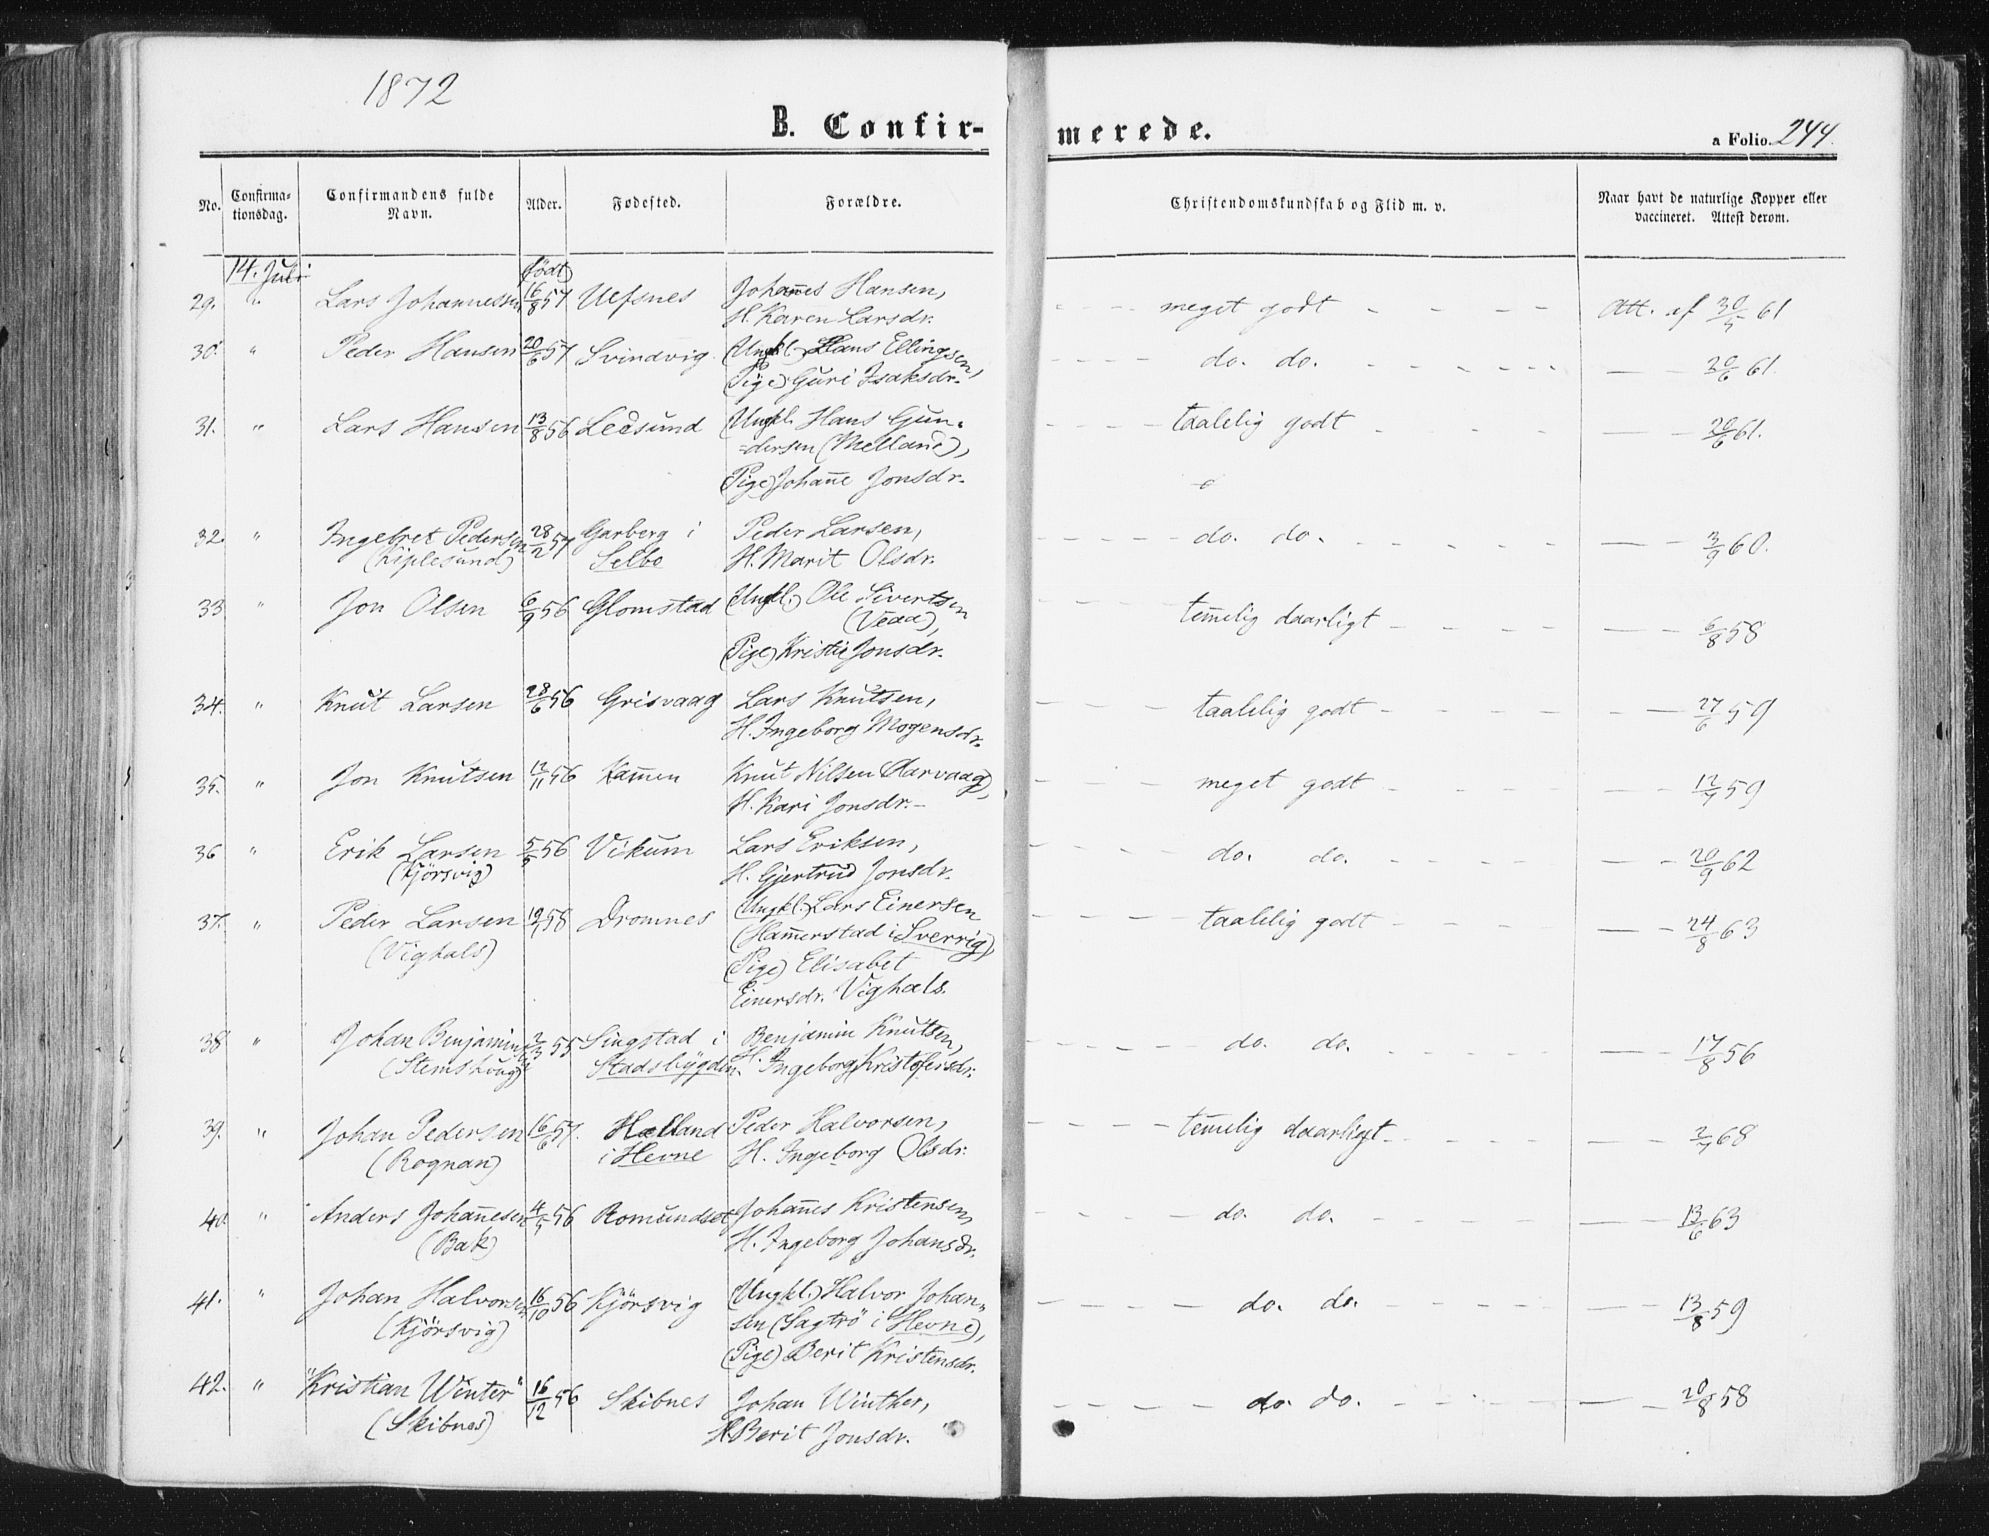 1872
B. Confir-
merede.
a Folio. 244.
No. Confirma-tionsdag. Confirmandens fulde Navn. Alder. Fødested. Forældre. Christendomskundskab og Flid m. v. Naar havt de naturlige Kopper eller vaccineret. Attest derom.
14. Juli født
29. " Lars Johannessen 16/8 57 Uefsnes Johannes Hansen, meget godt Att. af 30/5 61
H. Karen Larsdr.
30. " Peder Hansen 20/6 57 Svindvig (Ungkl.) Hans Ellingsen, do. do. 20/6 61.
(Pige) Guri Isaksdr.
31. " Lars Hansen 13/8 56 Ledsund (Ungkl. Hans Gun- taalelig godt 20/6 61.
-dersen (Melland),
(Pige) Johanne Jonsdr.
32. " Ingebret Pedersen 28/2 57 Garberg i Peder Larsen, do. do. 3/9 60.
(Kiplesund) Selbo H. Marit Olsdr.
33 " Jon Olsen 6/9 56 Glomstad (Ungkl.) Ole Sivertsen temmelig daarligt 6/8 58
(Veaa),
(Pige) Kristie Jonsdr.
34. " Knut Larsen 28/6 56 Grisvaag Lars Knutsen, taalelig godt 27/6 59
H. Ingeborg Mogensdr.
35. " Jon Knutsen 12/11 56 Hammen Knut Nilsen (Aarvaag), meget godt 12/9 59
H. Kari Jonsdr.
36 " Erik Larsen 5/5 56 Vikum Lars Eriksen, do. do. 20/9 62
(Kjörsvig) H. Gjertrud Jonsdr.
37. " Peder Larsen 19/7 58 Dromnes (Ungkl.) Lars Einersen taalelig godt 24/8 63
(Vighals) (Hammerstad i Sverrig),
(Pige) Elisabet
Einersdr. Vighals.
38 " Johan Benjamins. 2/3 55 Singstad i Benjamin Knutsen, do. do. 17/8 56
(Stemshaug) Stadsbygden. H. Ingeborg Kristofersdr.
39. " Johan Pedersen 16/6 57. Hælland Peder Halvorsen, temmelig daarligt 2/7 68
(Rognan) i Hevne H. Ingeborg Olsdr.
40 " Anders Johannesen 4/7 56 Romundset Johannes Kristensen, do. do. 13/6 63
(Bak) H. Ingeborg Johansdr.
41. " Johan Halvorsen 16/10 56 Kjörsvig (Ungkl.) Halvor Johan- do. do. 13/8 59
(Kjörsvig) sen (Sagtrö i Hevne),
(Pige) Berit Kristensdr.
42. " "Kristian Winter" 16/12 56 Skibnes Johan Winther, do. do. 20/8 58
(Skibnes) H. Berit Jonsdr.